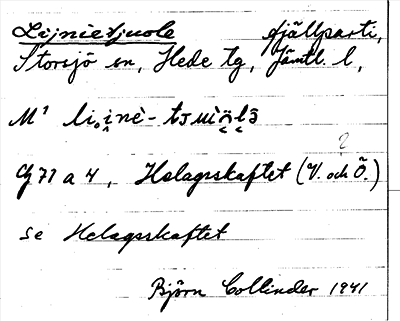 Lijnietjuole fjällparti,
Storsjö sn, Hede tg, Jämtl. l,
M¹ li.i̭nè-tsuiö̬l̬ɜ
?
Cg 71 a 4, Helagsskaftet (V. och Ö.)
se Helagsskaftet
Björn Collinder 1941